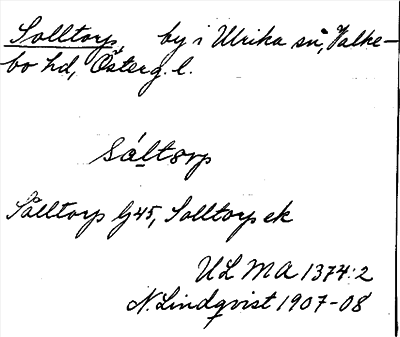 Solltorp, by i Ulrika sn, Valke-
bo hd, Österg. l.
sáltørp
Sålltorp G45, Solltorp ek
ULMA 1374:2
N. Lindqvist 1907-08